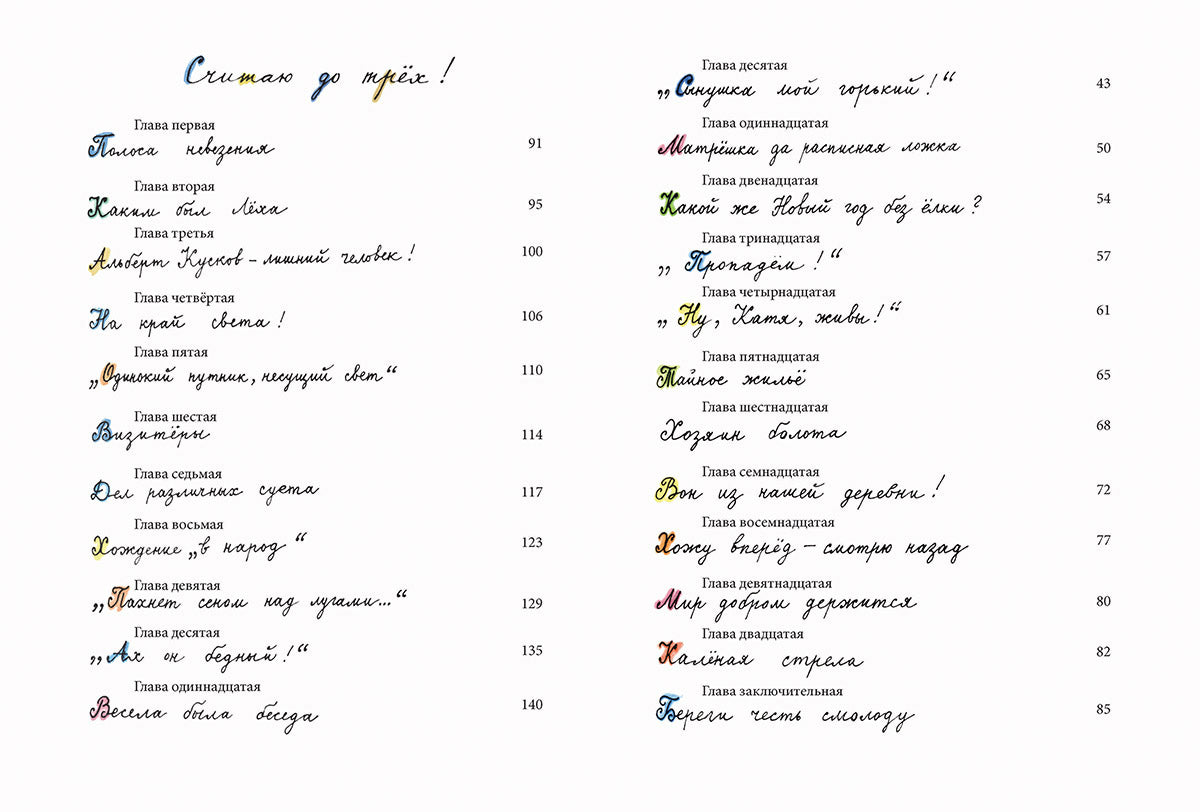 Считаю до трёх!
Глава первая
Полоса невезения 91
Глава вторая
Каким был Лёха 95
Глава третья
Альберт Кусков – лишний человек! 100
Глава четвёртая
На край света! 106
Глава пятая
„Одинокий путник, несущий свет“ 110
Глава шестая
Визитёры 114
Глава седьмая
Дел различных суета 117
Глава восьмая
Хождение „в народ“ 123
Глава девятая
„Пахнет сеном над лугами...“ 129
Глава десятая
„Ах он бедный!“ 135
Глава одиннадцатая
Весела была беседа 140
Глава десятая
„Сынушка мой горький!“ 43
Глава одиннадцатая
Матрёшка да расписная ложка 50
Глава двенадцатая
Какой же Новый год без ёлки? 54
Глава тринадцатая
„Пропадём!“ 57
Глава четырнадцатая
„Ну, Катя, живы!“ 61
Глава пятнадцатая
Тайное жильё 65
Глава шестнадцатая
Хозяин болота 68
Глава семнадцатая
Вон из нашей деревни! 72
Глава восемнадцатая
Хожу вперёд – смотрю назад 77
Глава девятнадцатая
Мир добром держится 80
Глава двадцатая
Калёная стрела 82
Глава заключительная
Береги честь смолоду 85